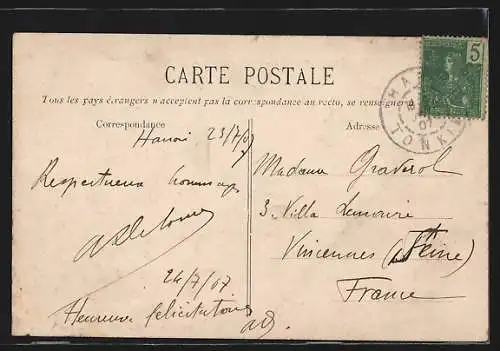 CARTE POSTALE
Tous les pays étrangers n'acceptent pas la correspondance au recto, se renseigner à
Correspondance
Adresse
Hanoi 23/7/07
Respectueux hommages
24/7/07
Heureuse félicitations
Madame Graverol
3 Villa Lemoine
Vincennes (Seine)
France
5
TONKIN